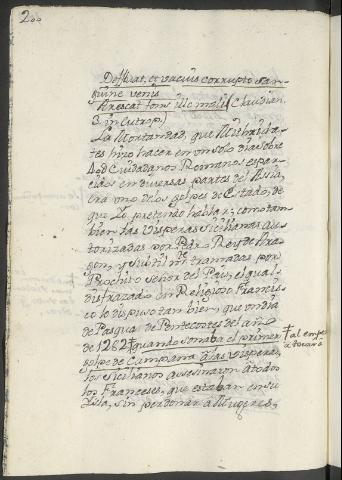 200
Defluat, et vacuis corrupto san-
guine venis
Arescat fons ille mali (Claudian.
3. in Eutrop.)
La Mortandad, que Mithrida-
tes hizo hacer en un solo dia sobre
Ciudadanos Romanos espar-
cidos en diversas partes del Asia,
era uno de los golpes de Estado, de
que Yo pretendo hablar; como tam-
bien las Visperas Sicilianas au-
torizadas por Pedro Rey de Ara-
gon, y subtilmte tramadas por
Prochito señor del Pais, el qual
disfrazado en Religioso Francis-
co lo dispuso tan bien, que un dia
de Pasqua de Pentecostes del año
de 1282 quando sonaba el primer
golpe de Campana a las visperas,
los Sicilianos asesinaron a todos
los Franceses, que estaban en su
Ysla, sin perdonar a Mugeres,
al empe